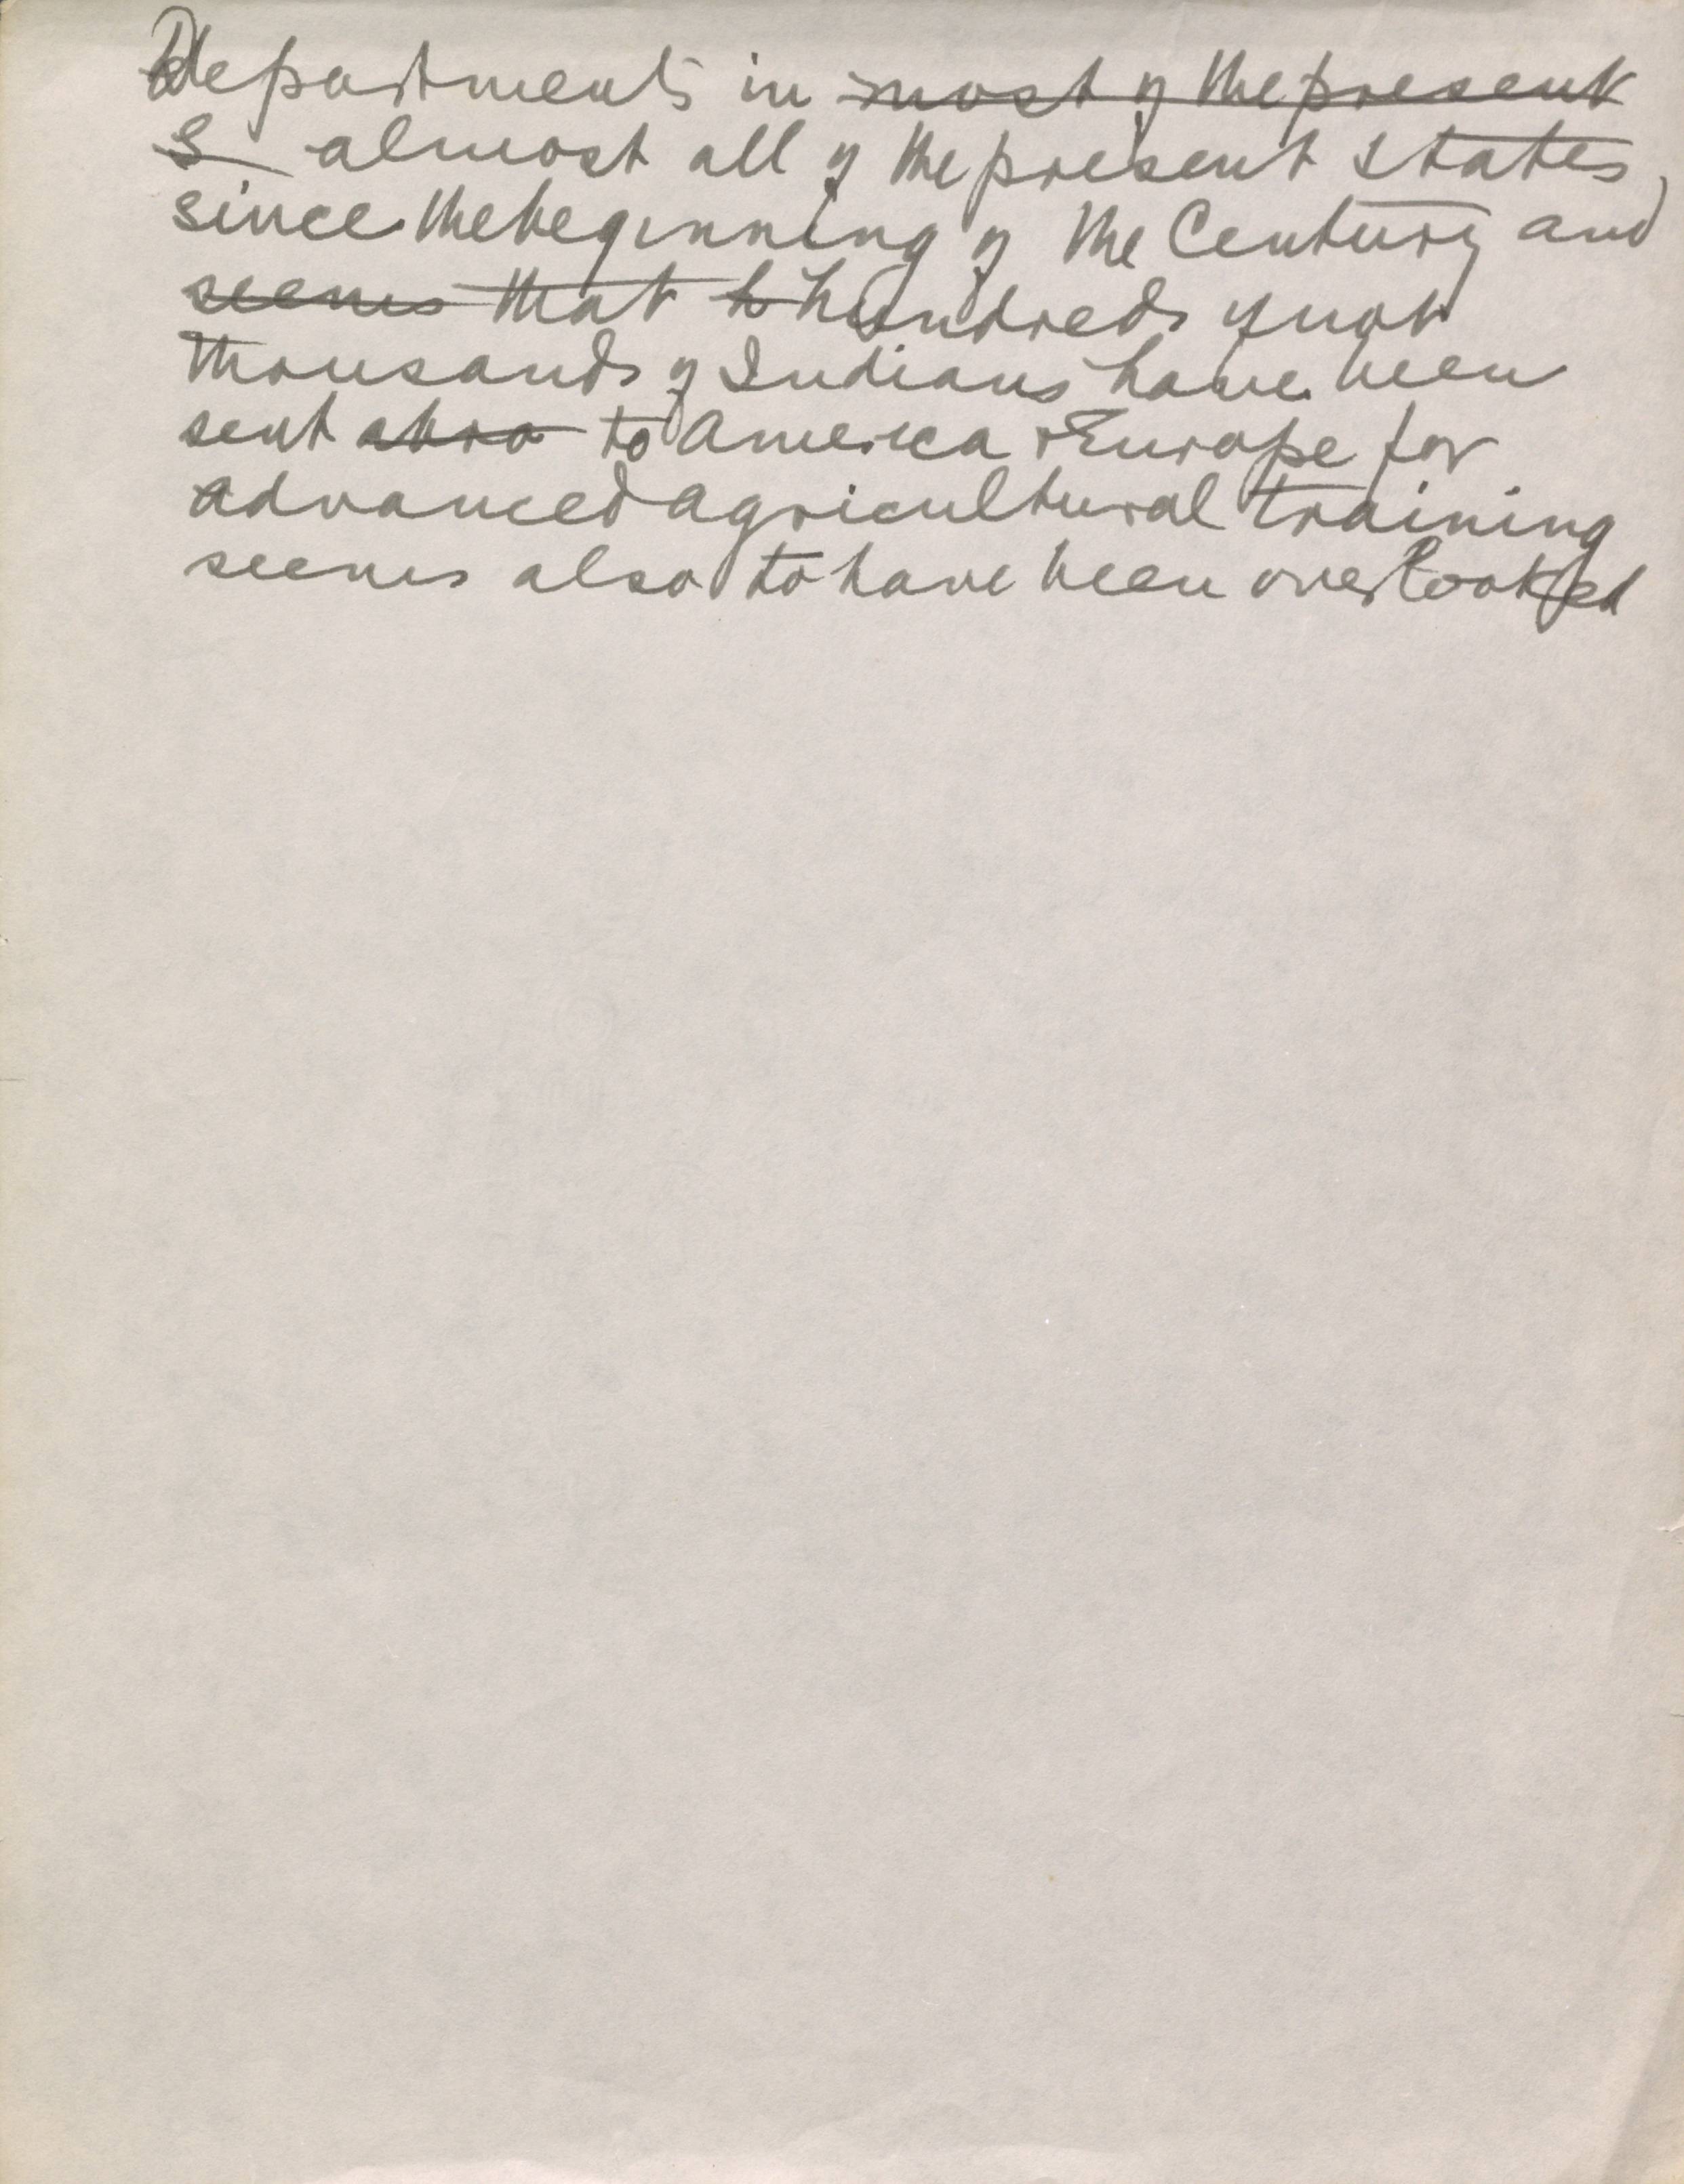 Departments in ~~most of the present~~
~~S~~ almost all of the present states,
since the beginning of the Century and
~~seems that h~~ hundreds if not
thousands of Indians have been
sent ~~abro~~ to America & Europe for
advanced agricultural training
seems also to have been overlooked